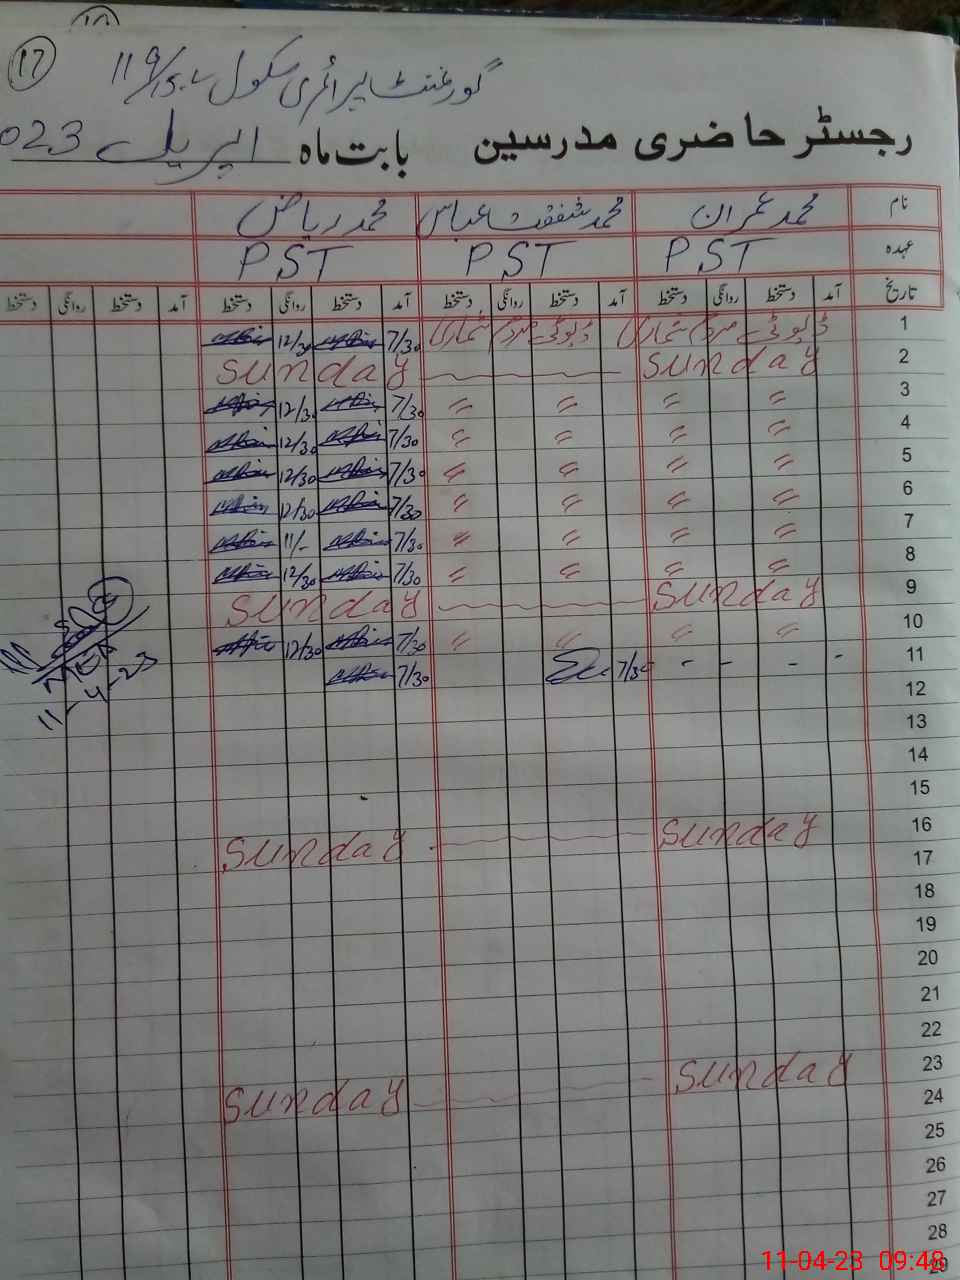 17
گورنمنٹ پرائمری سکول 119/15.L
رجسٹر حاضری مدرسین بابت ماہ اپریل 023
نام محمد عمران محمد شفقت عباس محمد ریاض
عہدہ PST PST PST
تاریخ آمد دستخط روانگی دستخط آمد دستخط روانگی دستخط آمد دستخط روانگی دستخط آمد دستخط روانگی دستخط
1 ڈیوٹی مردم شماری ڈیوٹی مردم شماری 7/30 12/30
2 Sunday Sunday
3 〃 〃 〃 〃 7/30 12/30
4 〃 〃 〃 〃 7/30 12/30
5 〃 〃 〃 〃 7/30 12/30
6 〃 〃 〃 〃 7/30 12/30
7 〃 〃 〃 〃 7/30 11/-
8 〃 〃 〃 〃 7/30 12/30
9 Sunday Sunday
10 〃 〃 〃 〃 7/30 12/30
11 - - - - 7/30 7/30
MEA
11-4-23
12
13
14
15
16 Sunday Sunday
17
18
19
20
21
22
23 Sunday Sunday
24
25
26
27
28
29
11-04-23 09:48